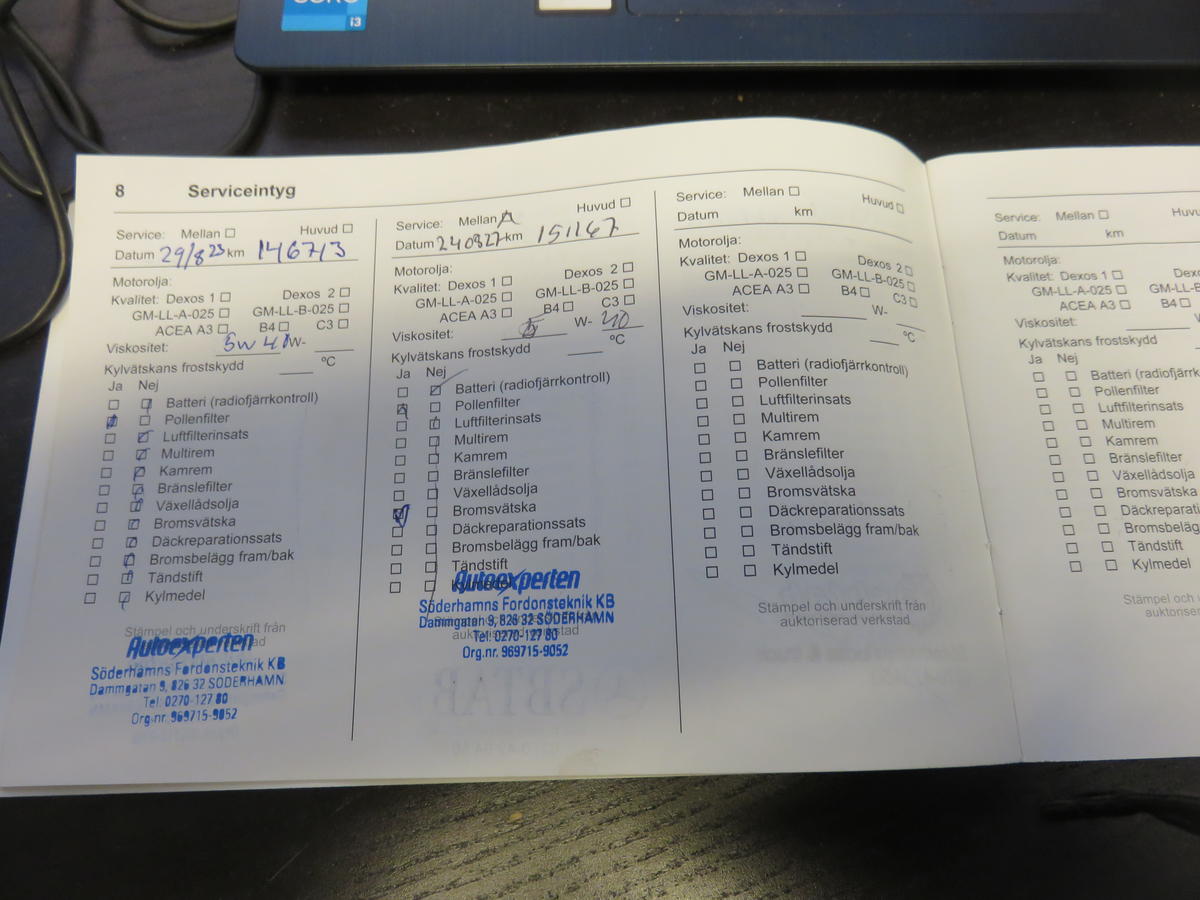 i3
8 Serviceintyg
Service: Mellan ☐ Huvud ☐
Datum 29/8 23 km 146713
Motorolja:
Kvalitet: Dexos 1 ☐ Dexos 2 ☐
GM-LL-A-025 ☐ GM-LL-B-025 ☐
ACEA A3 ☐ B4 ☐ C3 ☐
Viskositet: 5w 40 W-
Kylvätskans frostskydd °C
Ja Nej
Batteri (radiofjärrkontroll)
Pollenfilter
Luftfilterinsats
Multirem
Kamrem
Bränslefilter
Växellådsolja
Bromsvätska
Däckreparationssats
Bromsbelägg fram/bak
Tändstift
Kylmedel
Stämpel och underskrift från
Autoexperten
Söderhamns Fordonsteknik KB
Dammgatan 9, 826 32 SÖDERHAMN
Tel: 0270-127 80
Org.nr. 969715-9052
Service: Mellan Huvud ☐
Datum 240827 km 151167
Motorolja:
Kvalitet: Dexos 1 ☐ Dexos 2 ☐
GM-LL-A-025 ☐ GM-LL-B-025 ☐
ACEA A3 ☐ B4 ☐ C3 ☐
Viskositet: 5 W- 40
Kylvätskans frostskydd °C
Ja Nej
Batteri (radiofjärrkontroll)
Pollenfilter
Luftfilterinsats
Multirem
Kamrem
Bränslefilter
Växellådsolja
Bromsvätska
Däckreparationssats
Bromsbelägg fram/bak
Tändstift
Kylmedel
Autoexperten
Söderhamns Fordonsteknik KB
Dammgatan 9, 826 32 SÖDERHAMN
Tel: 0270-127 80
Org.nr. 969715-9052
Service: Mellan ☐ Huvud ☐
Datum km
Motorolja:
Kvalitet: Dexos 1 ☐ Dexos 2 ☐
GM-LL-A-025 ☐ GM-LL-B-025 ☐
ACEA A3 ☐ B4 ☐ C3 ☐
Viskositet: W-
Kylvätskans frostskydd °C
Ja Nej
Batteri (radiofjärrkontroll)
Pollenfilter
Luftfilterinsats
Multirem
Kamrem
Bränslefilter
Växellådsolja
Bromsvätska
Däckreparationssats
Bromsbelägg fram/bak
Tändstift
Kylmedel
Stämpel och underskrift från
auktoriserad verkstad
Service: Mellan ☐
Datum km
Motorolja:
Kvalitet: Dexos 1 ☐
GM-LL-A-025 ☐
ACEA A3 ☐ B4 ☐
Viskositet:
Kylvätskans frostskydd
Ja Nej
Batteri
Pollenfilter
Luftfilterinsats
Multirem
Kamrem
Bränslefilter
Växellådsolja
Bromsvätska
Bromsbelägg
Tändstift
Kylmedel
Stämpel och